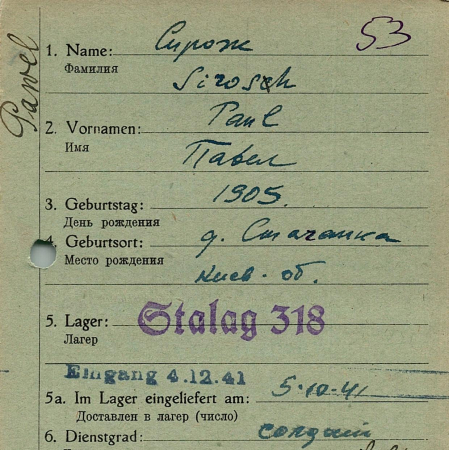 53
Pawel
1. Name: Сирож
Фамилия
Sirosch
2. Vornamen: Paul
Имя
Павел
3. Geburtstag: 1905.
День рождения
4. Geburtsort: д. Стачанка
Место рождения
Киев. об.
5. Lager: Stalag 318
Лагер
Eingang 4.12.41
5а. Im Lager eingeliefert am: 5-10-41
Доставлен в лагер (число)
6. Dienstgrad: солдат